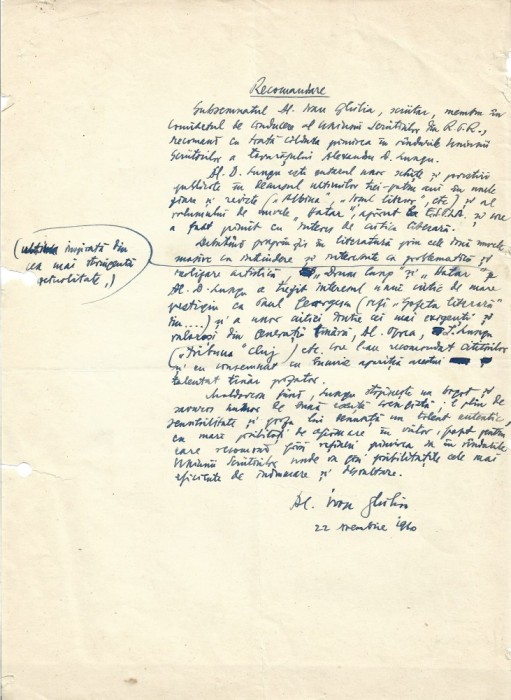 Recomandare
Subsemnatul Al. Ivan Ghilia, scriitor, membru în
Comitetul de conducere al Uniunii Scriitorilor din R.P.R.,
recomand cu toată căldura primirea în rîndurile Uniunii
Scriitorilor a tovarășului Alexandru D. Lungu.
Al. D. Lungu este autorul unor schițe și povestiri
publicate în decursul ultimilor trei-patru ani în multe
ziare și reviste („Albina", etc) și al
volumului de nuvele „Hatar", apărut la și care
a fost primit cu interes de critica literară.
Debutînd în literatură prin cele două nuvele
masive ca întindere și interesante ca problematică și
(inspirată din
cea mai stringentă
actualitate,)
realizare artistică „Drum lung" și „Hatar"
Al. D. Lungu a trezit interesul unui critic de mare
prestigiu ca Paul Georgescu (vezi „Gazeta literară"
din ....) și a unor critici dintre cei mai exigenți și
valoroși din generația tînără, Al. Oprea, I. Lungu
(„Tribuna" Cluj) etc. care l-au recomandat cititorilor
și au consemnat cu bucurie apariția acestui
talentat tînăr prozator.
Moldovean fiind, Lungu stăpînește un bogat și
savuros umor de bună calitate, E plin de
sensibilitate și proza lui denunță un talent autentic,
cu mari posibilități de afirmare în viitor, fapt pentru
care recomand fără rețineri primirea sa în rîndurile
Uniunii Scriitorilor unde va găsi posibilitățile cele mai
eficiente de îndrumare și dezvoltare.
Al. Ivan Ghilia
22 noembrie 1960